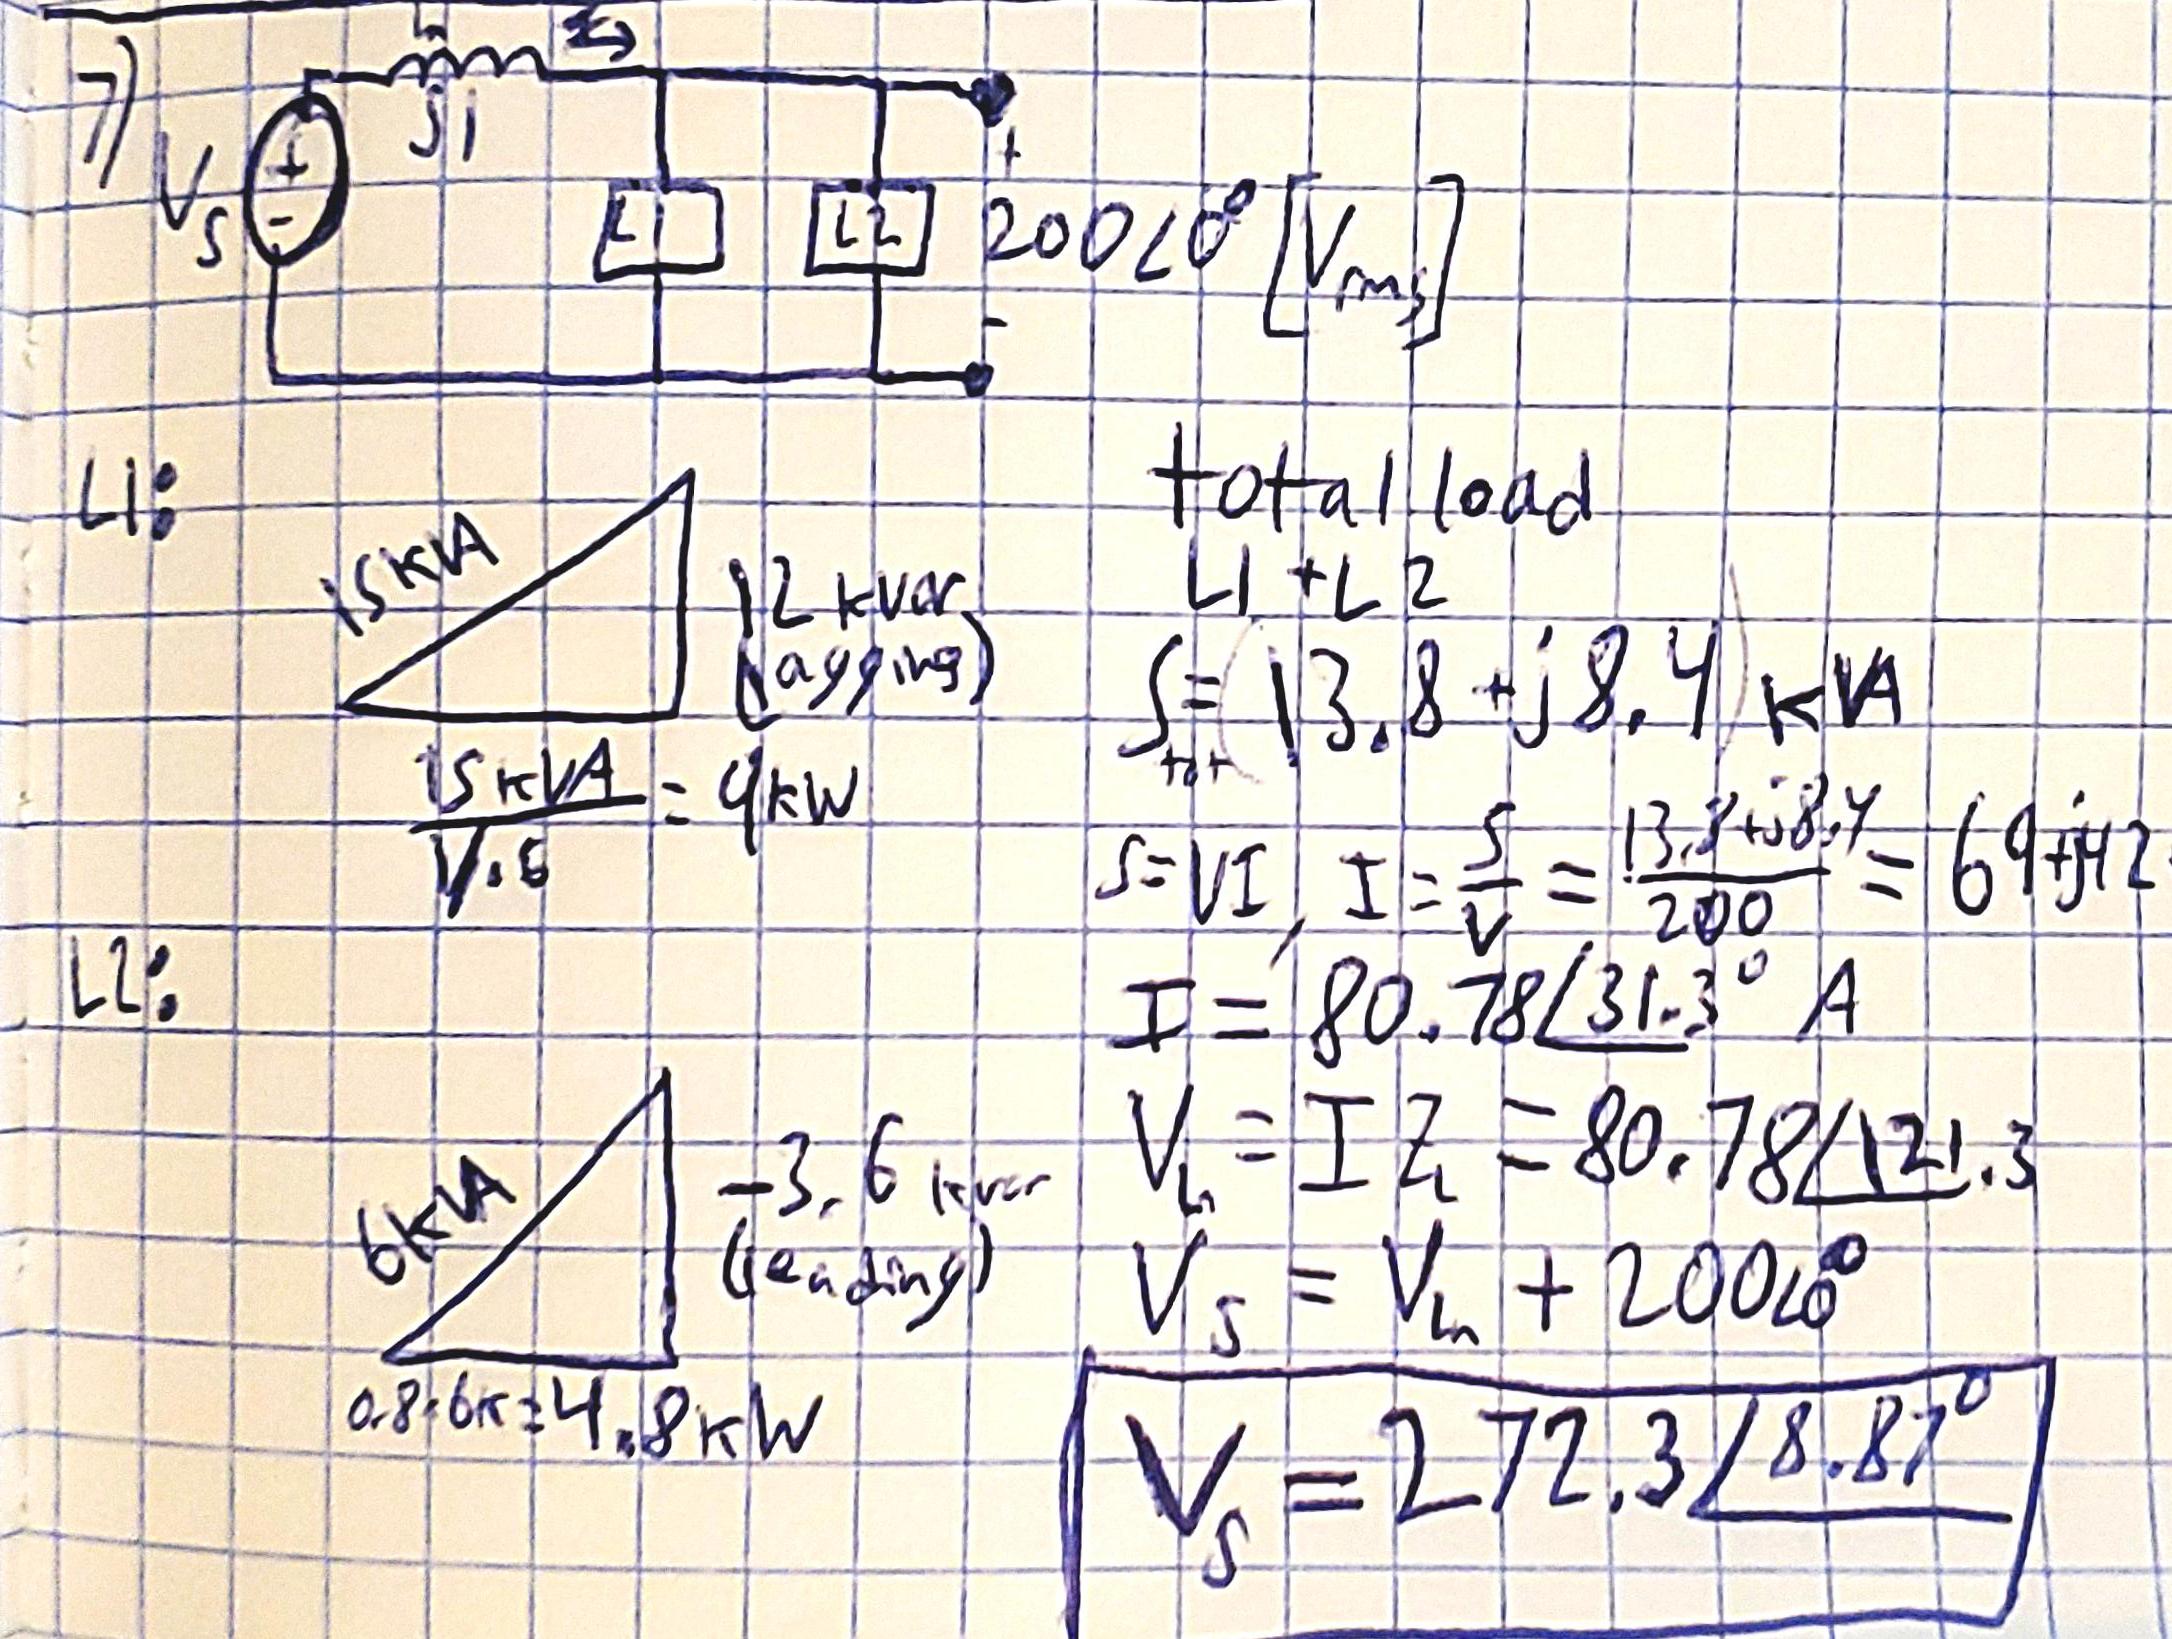 7)
Ln
I→
j1
Vs
+
-
L1
L2
+
200∠0° [Vrms]
-
L1:
15 kVA
12 kvar
(lagging)
15kVA / 1/.6 = 9kW
L2:
6kVA
-3.6 kvar
(leading)
0.8·6k=4.8kW
total load
L1 + L2
Stot = (13.8 + j8.4) kVA
S=VI, I = S/V = 13.8+j8.4 / 200 = 69+j42
I = 80.78∠31.3° A
VLn = I ZL = 80.78∠121.3
Vs = VLn + 200∠0°
Vs = 272.3∠8.87°